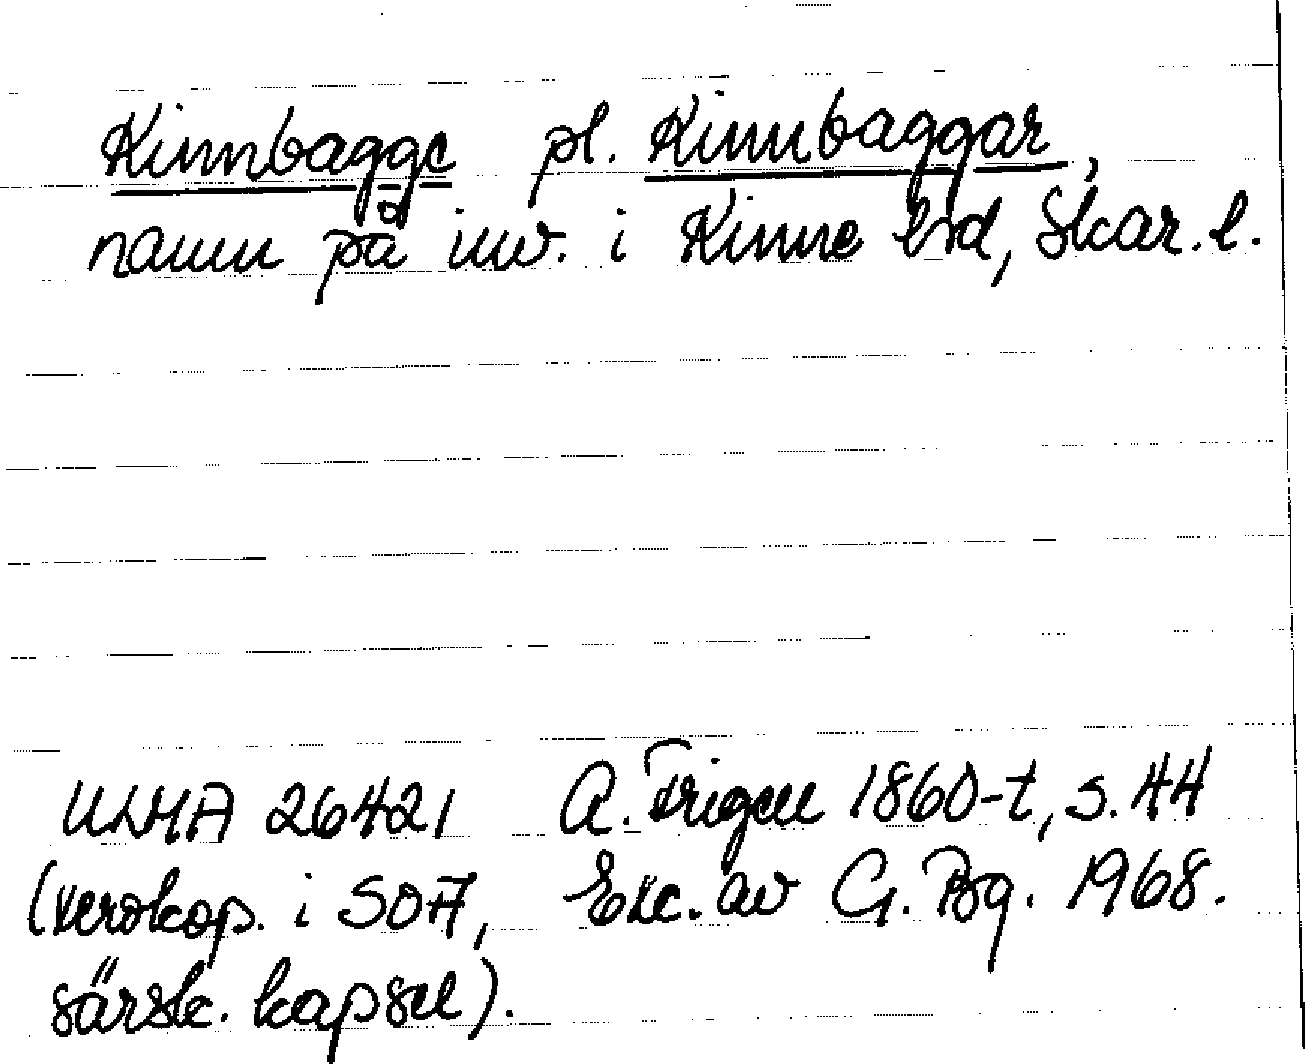 Kinnbagge pl. Kinnbaggar,
namn på inv. i Kinne hrd, Skar. l.
ULMA 26421 A. Trigell 1860-t, s. 44
(xerokop. i SOA, Exc. av G. Bg. 1968.
särsk. kapsel).